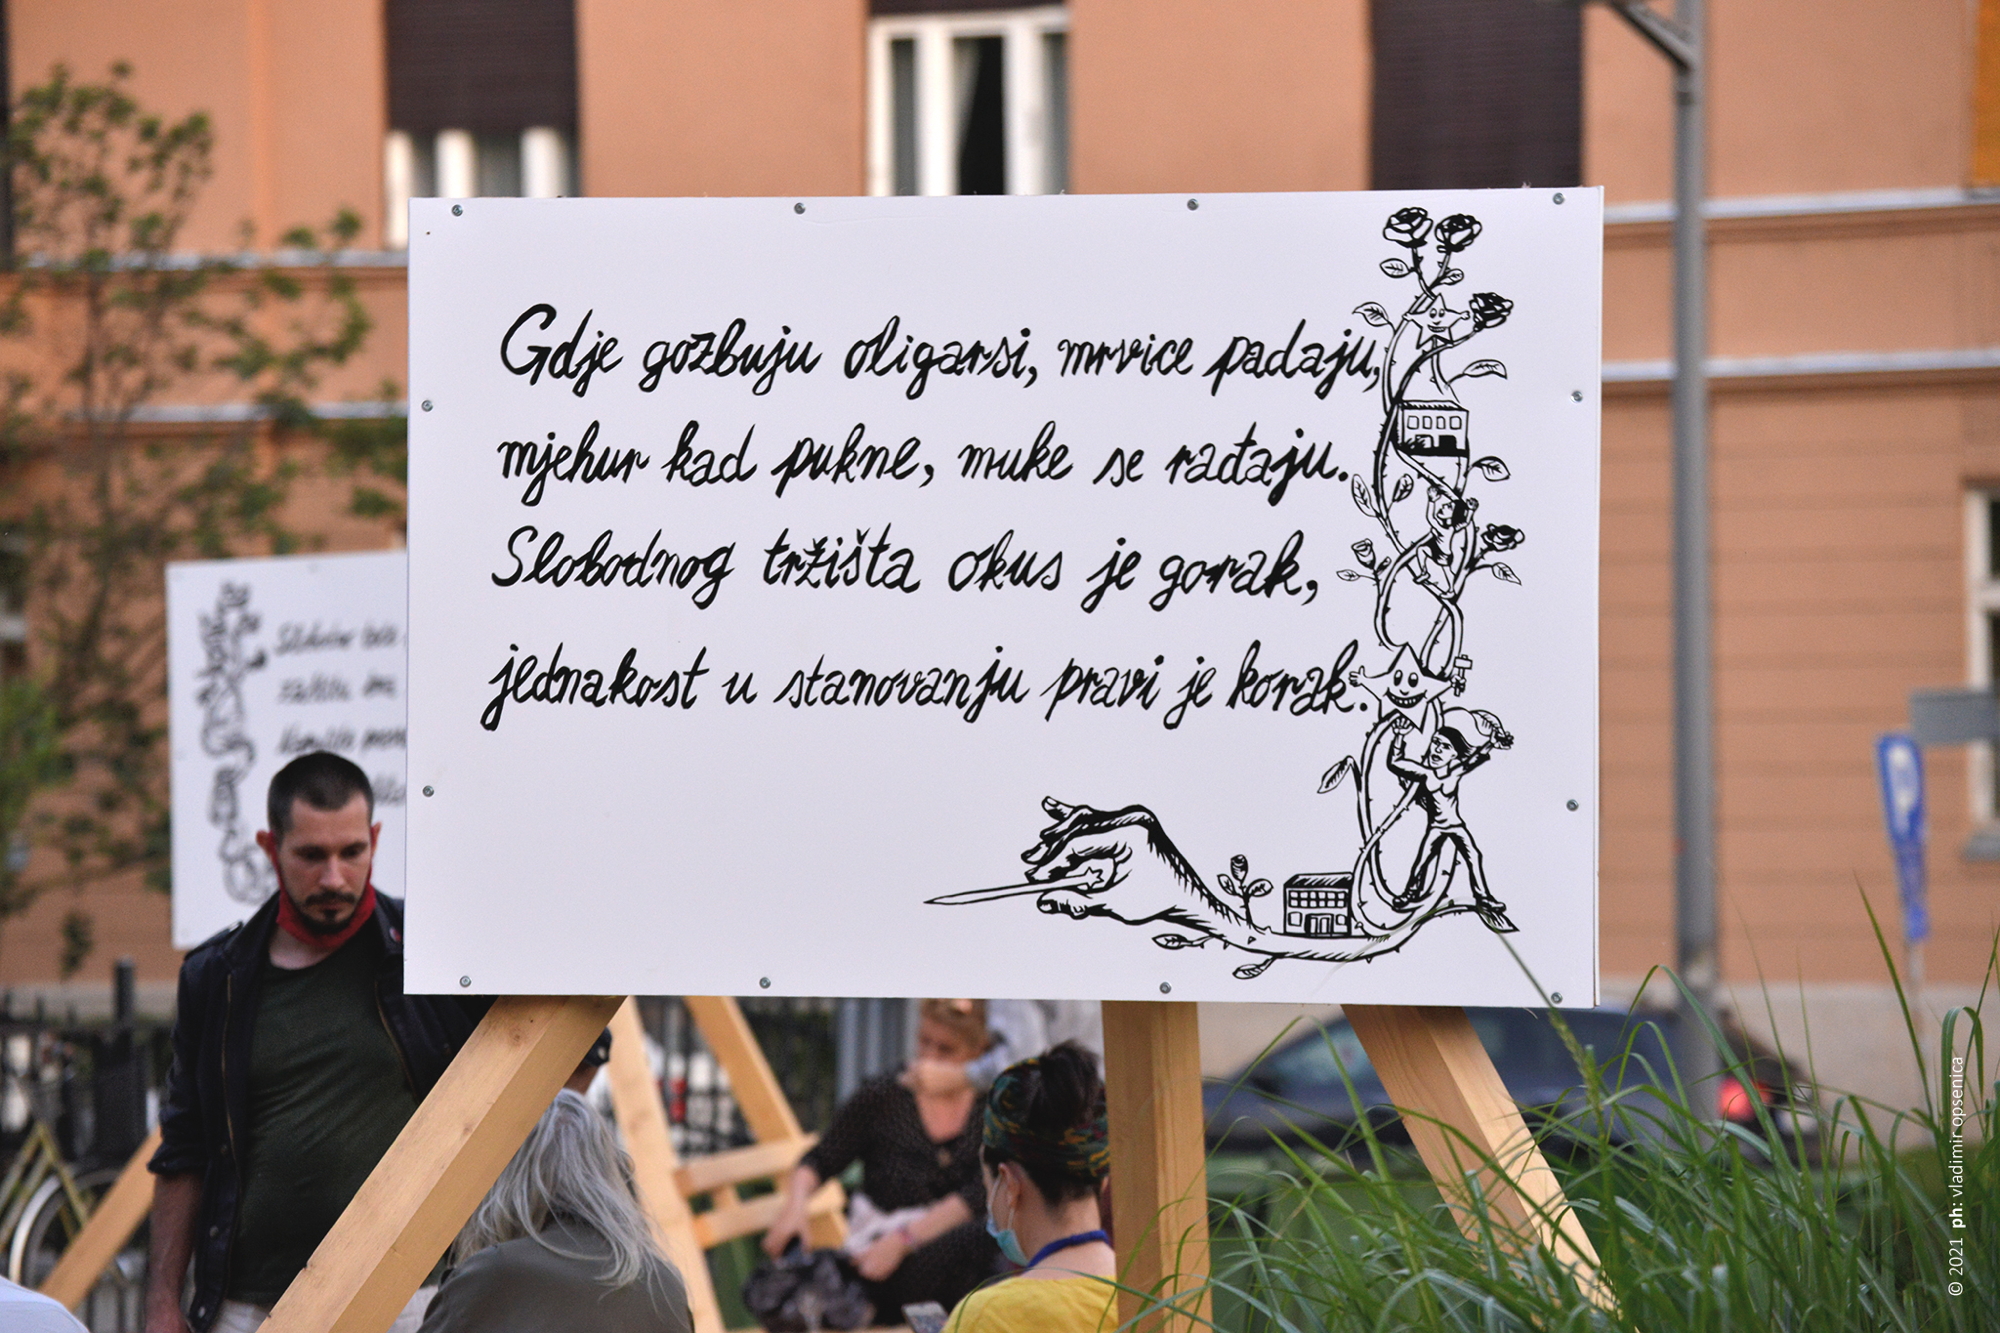 Gdje gozbuju oligarsi, mrvice padaju,
mjehur kad pukne, muke se rađaju.
Slobodnog tržišta okus je gorak,
jednakost u stanovanju pravi je korak.
© 2021 ph: vladimir opsenica